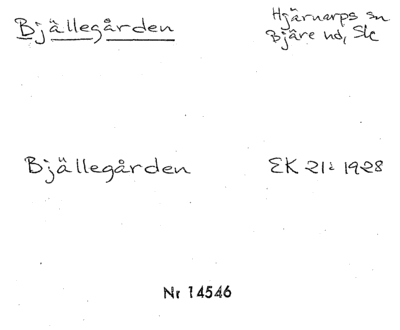 Bjällegården
Hjärnarps sn
Bjäre hd, Sk
Bjällegården
EK 21: 1928
Nr 14546